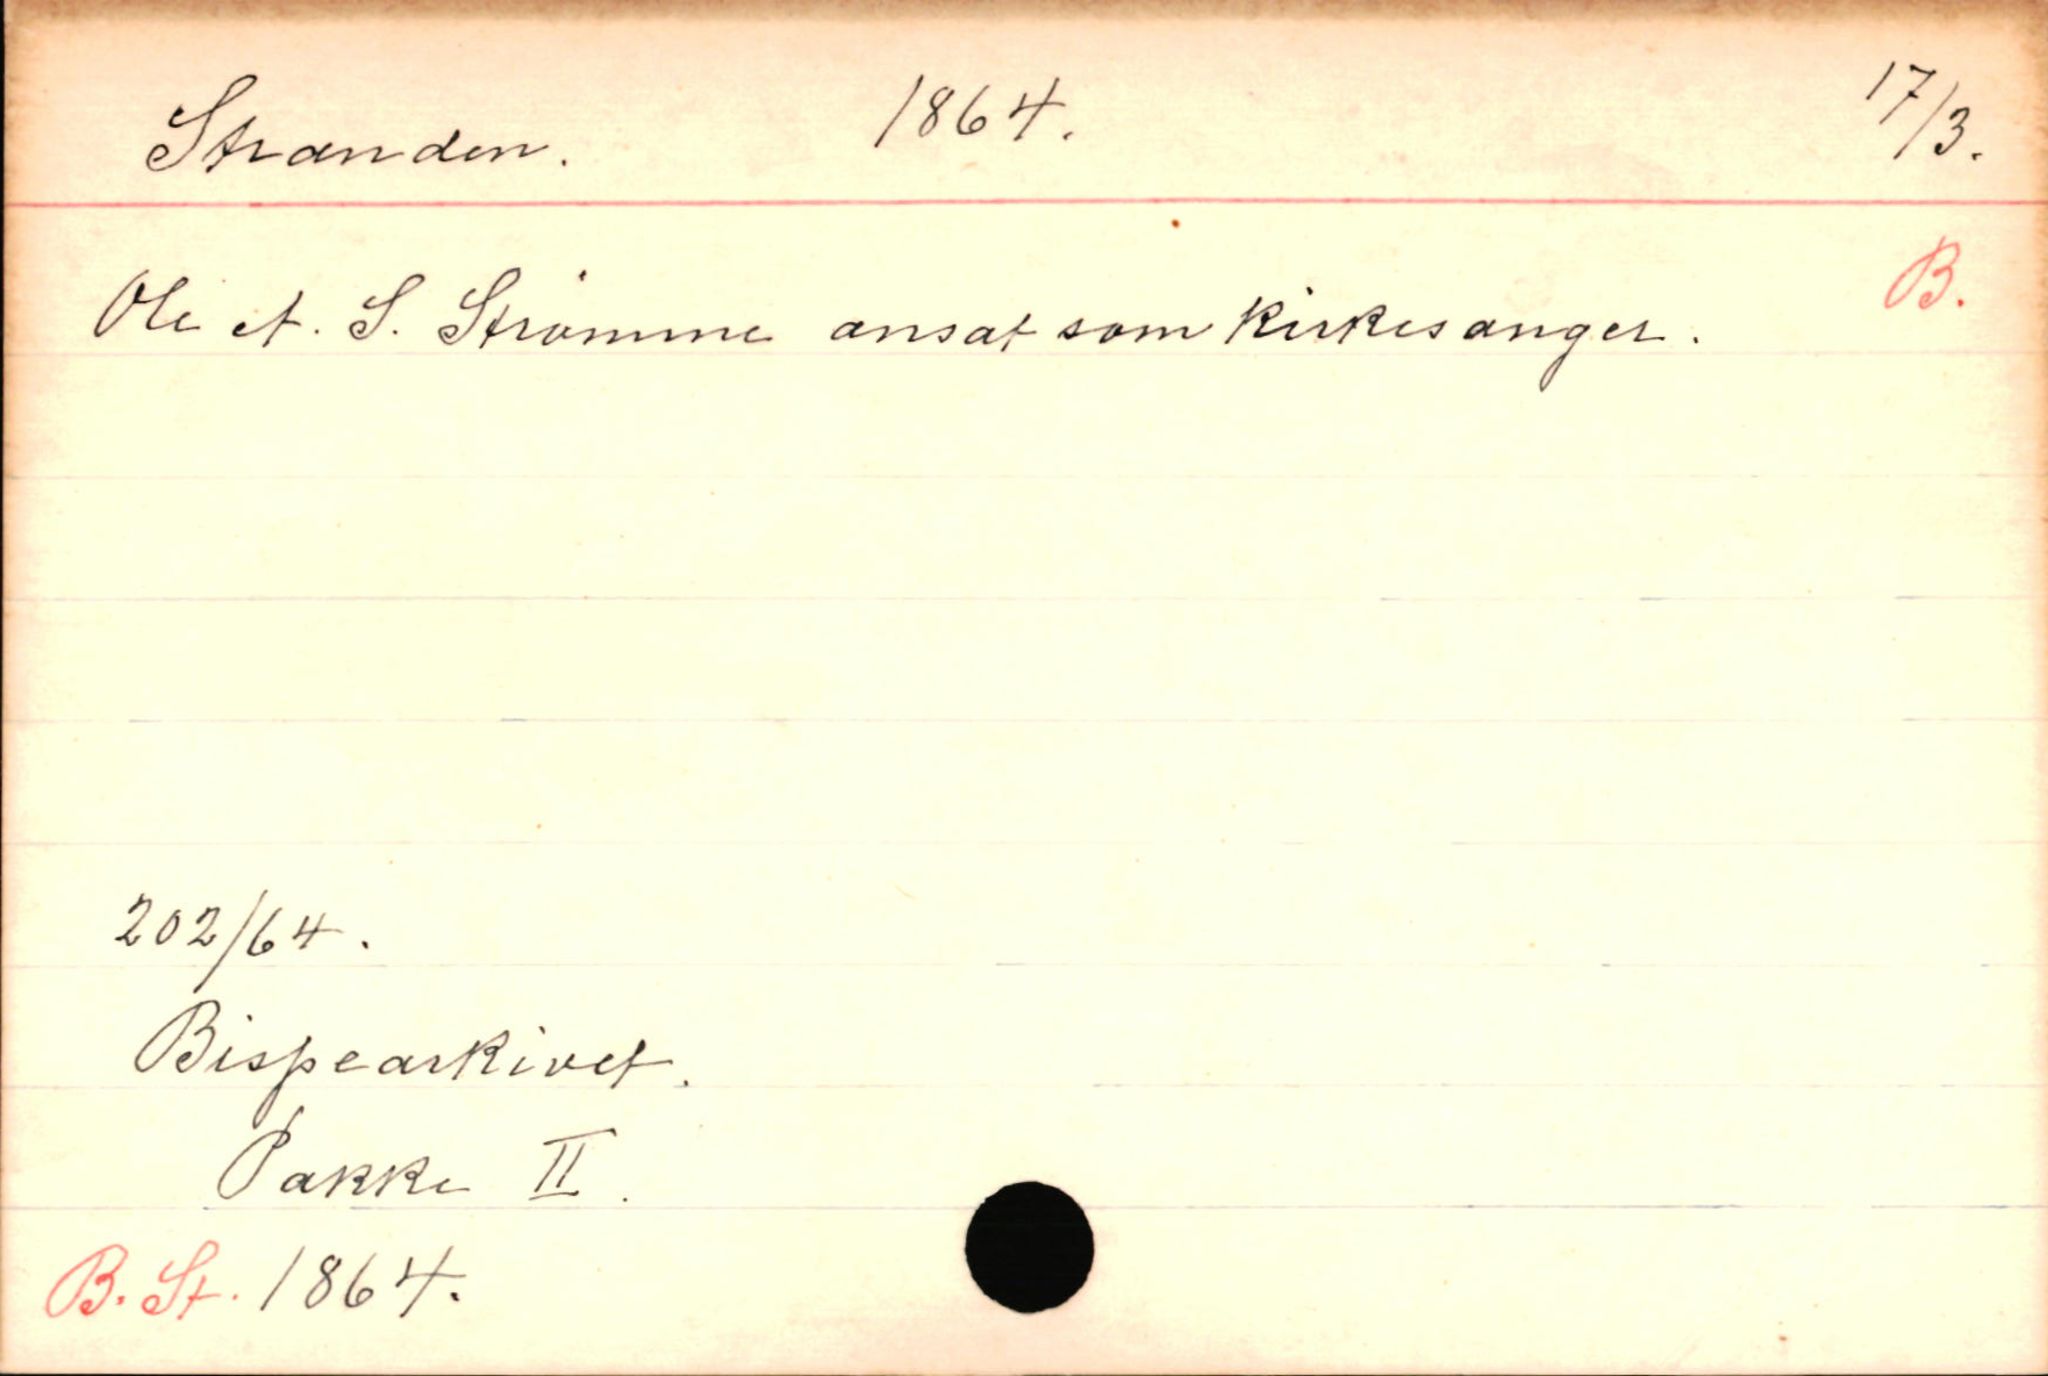 Stranden. 1864. 17/3.
B.
Ole A. S. Strømme ansat som kirkesanger.
202/64.
Bispearkivet.
Pakke II.
B. St. 1864.